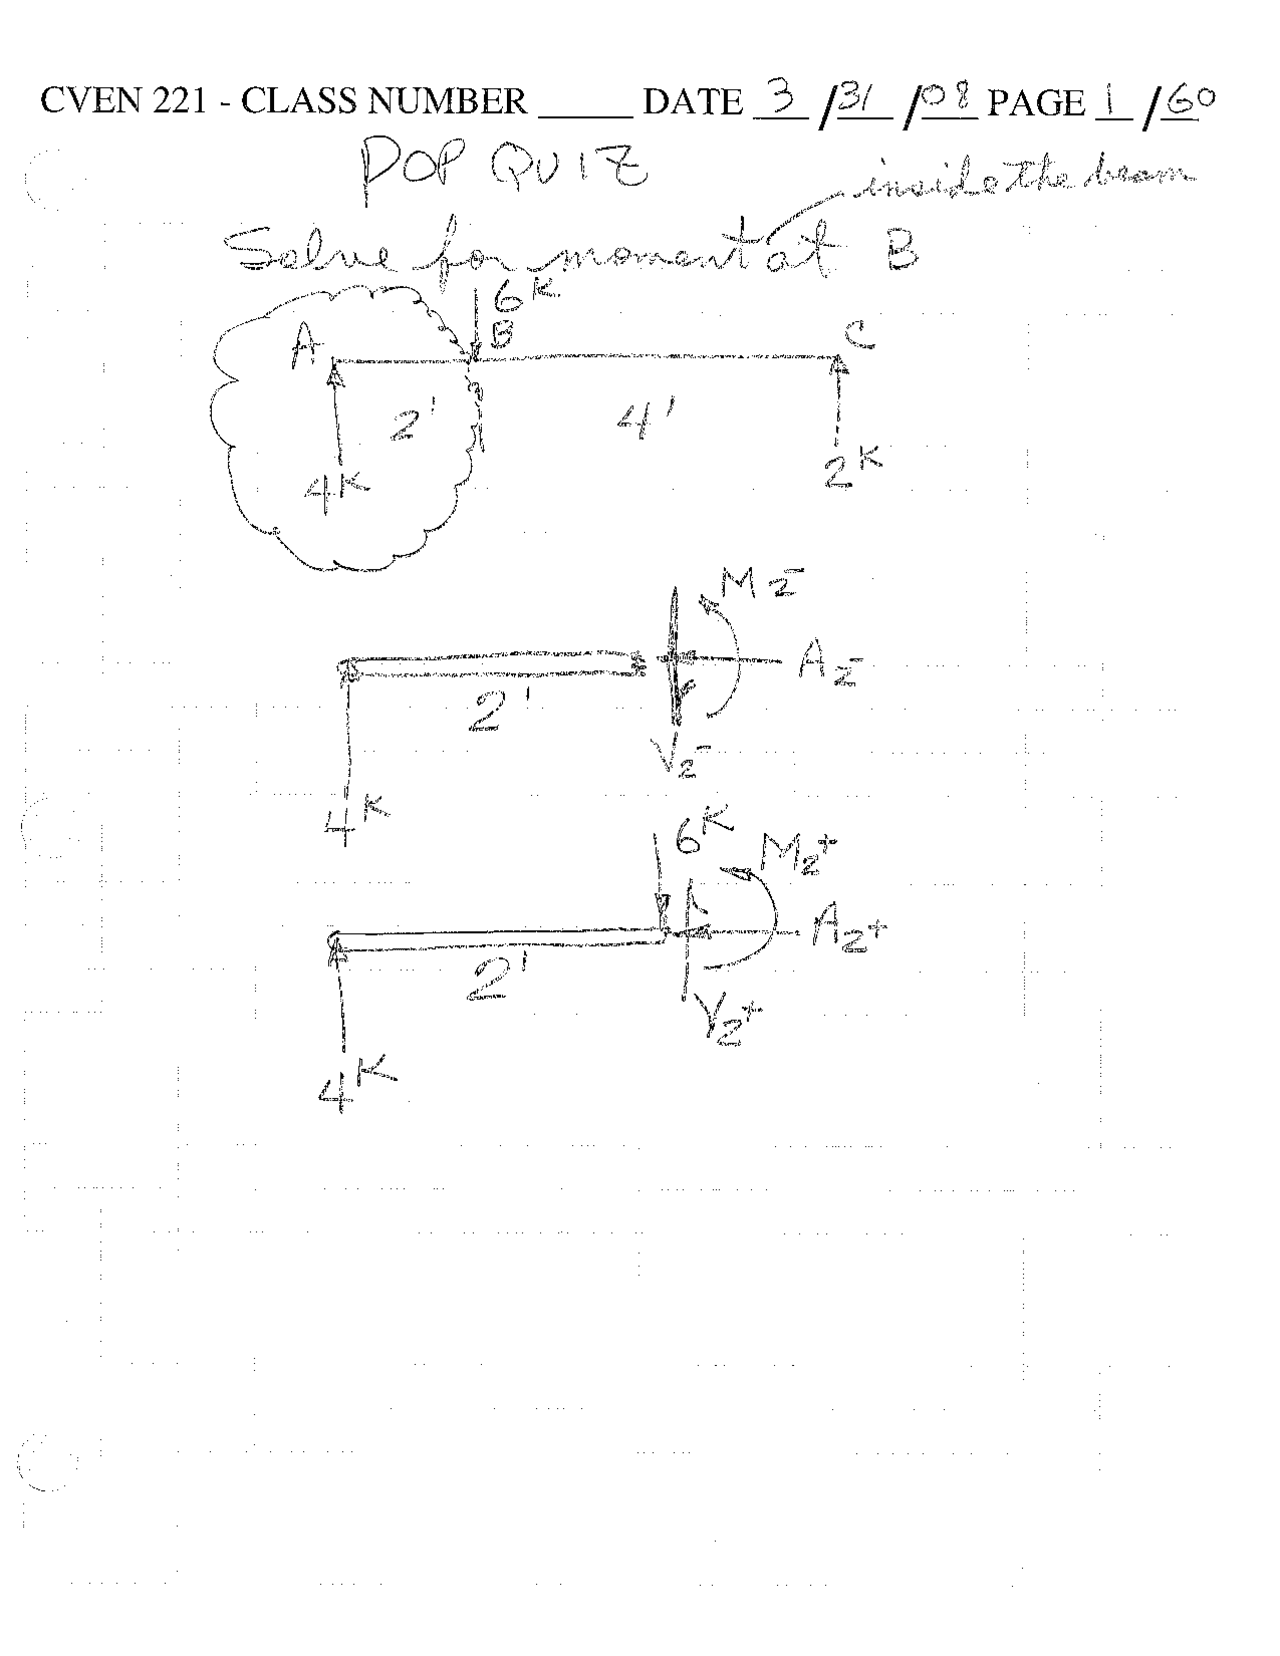 CVEN 221 - CLASS NUMBER _____ DATE 3 /31 /08 PAGE 1 /60
POP QUIZ
inside the beam
Solve for moment at B
6K
A B C
2' 4'
4K 2K
M2-
A2-
2'
V2-
4K
6K M2+
A2+
2'
V2+
4K